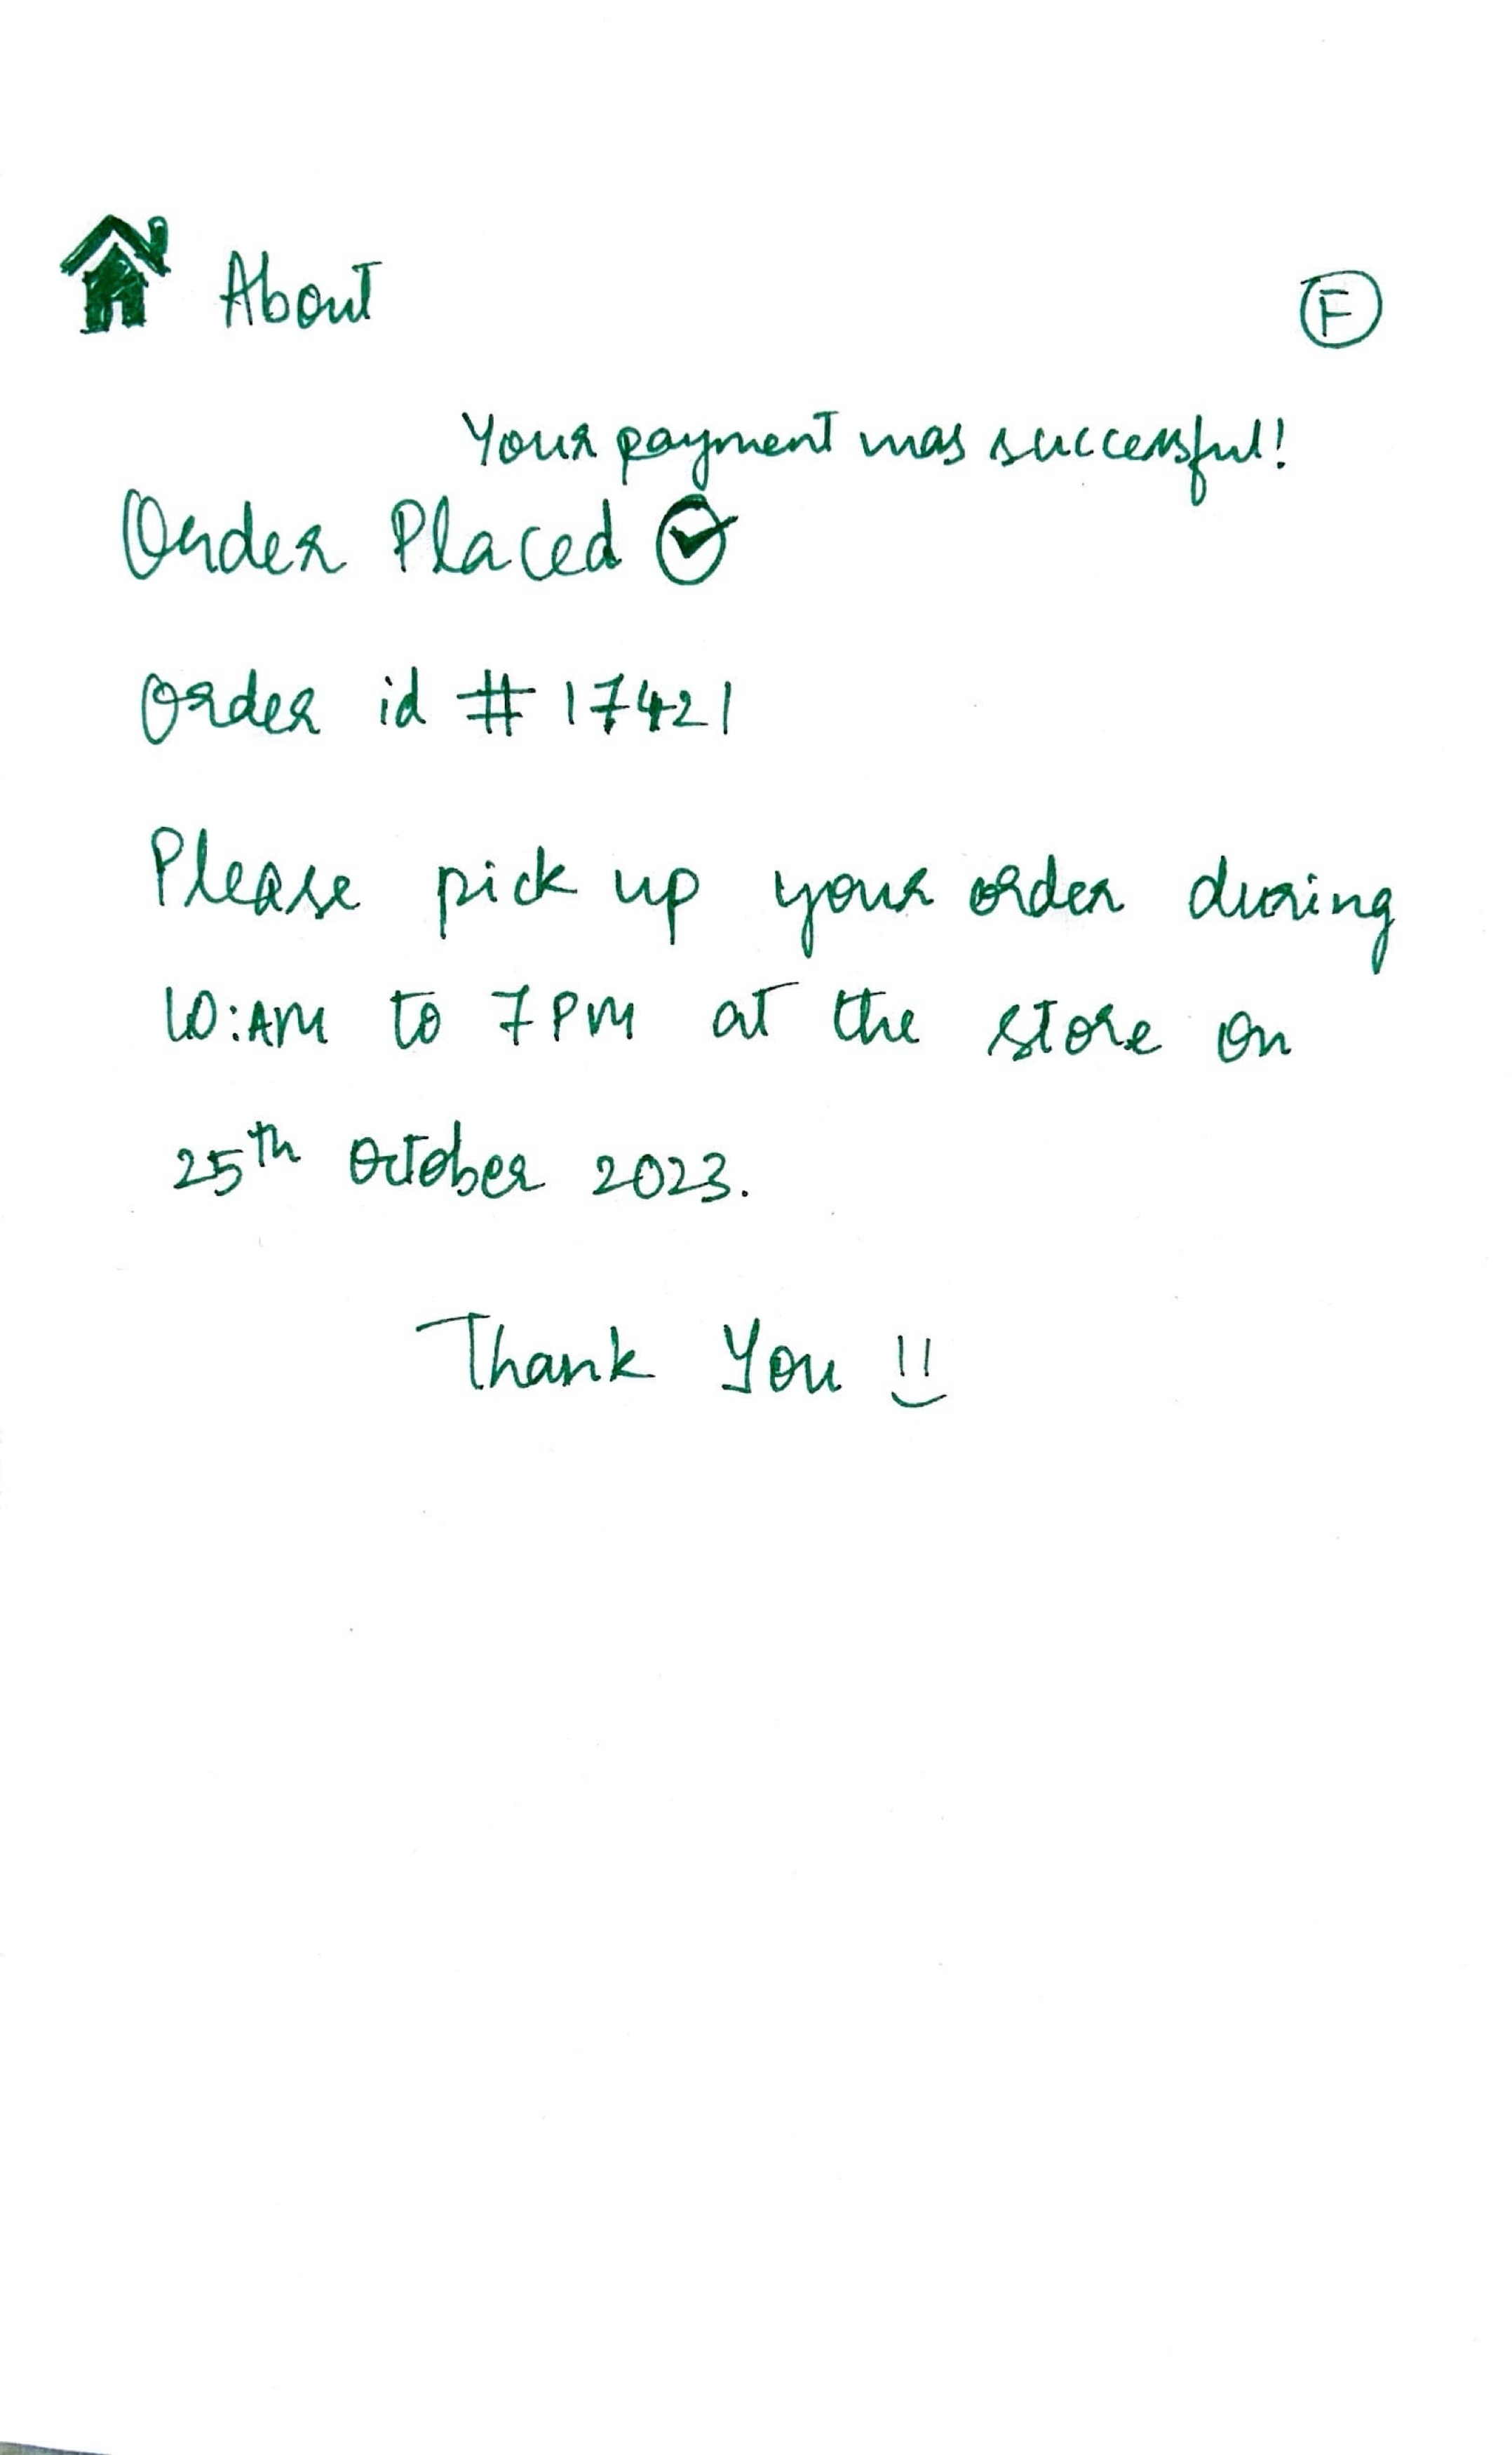 About F
Your payment was successful!
Order Placed
Order id # 17421
Please pick up your order during
10:AM to 7PM at the store on
25th October 2023.
Thank You !!